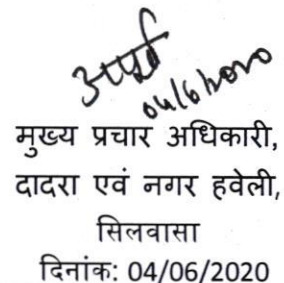 04/6/2020
मुख्य प्रचार अधिकारी,
दादरा एवं नगर हवेली,
सिलवासा
दिनांक: 04/06/2020